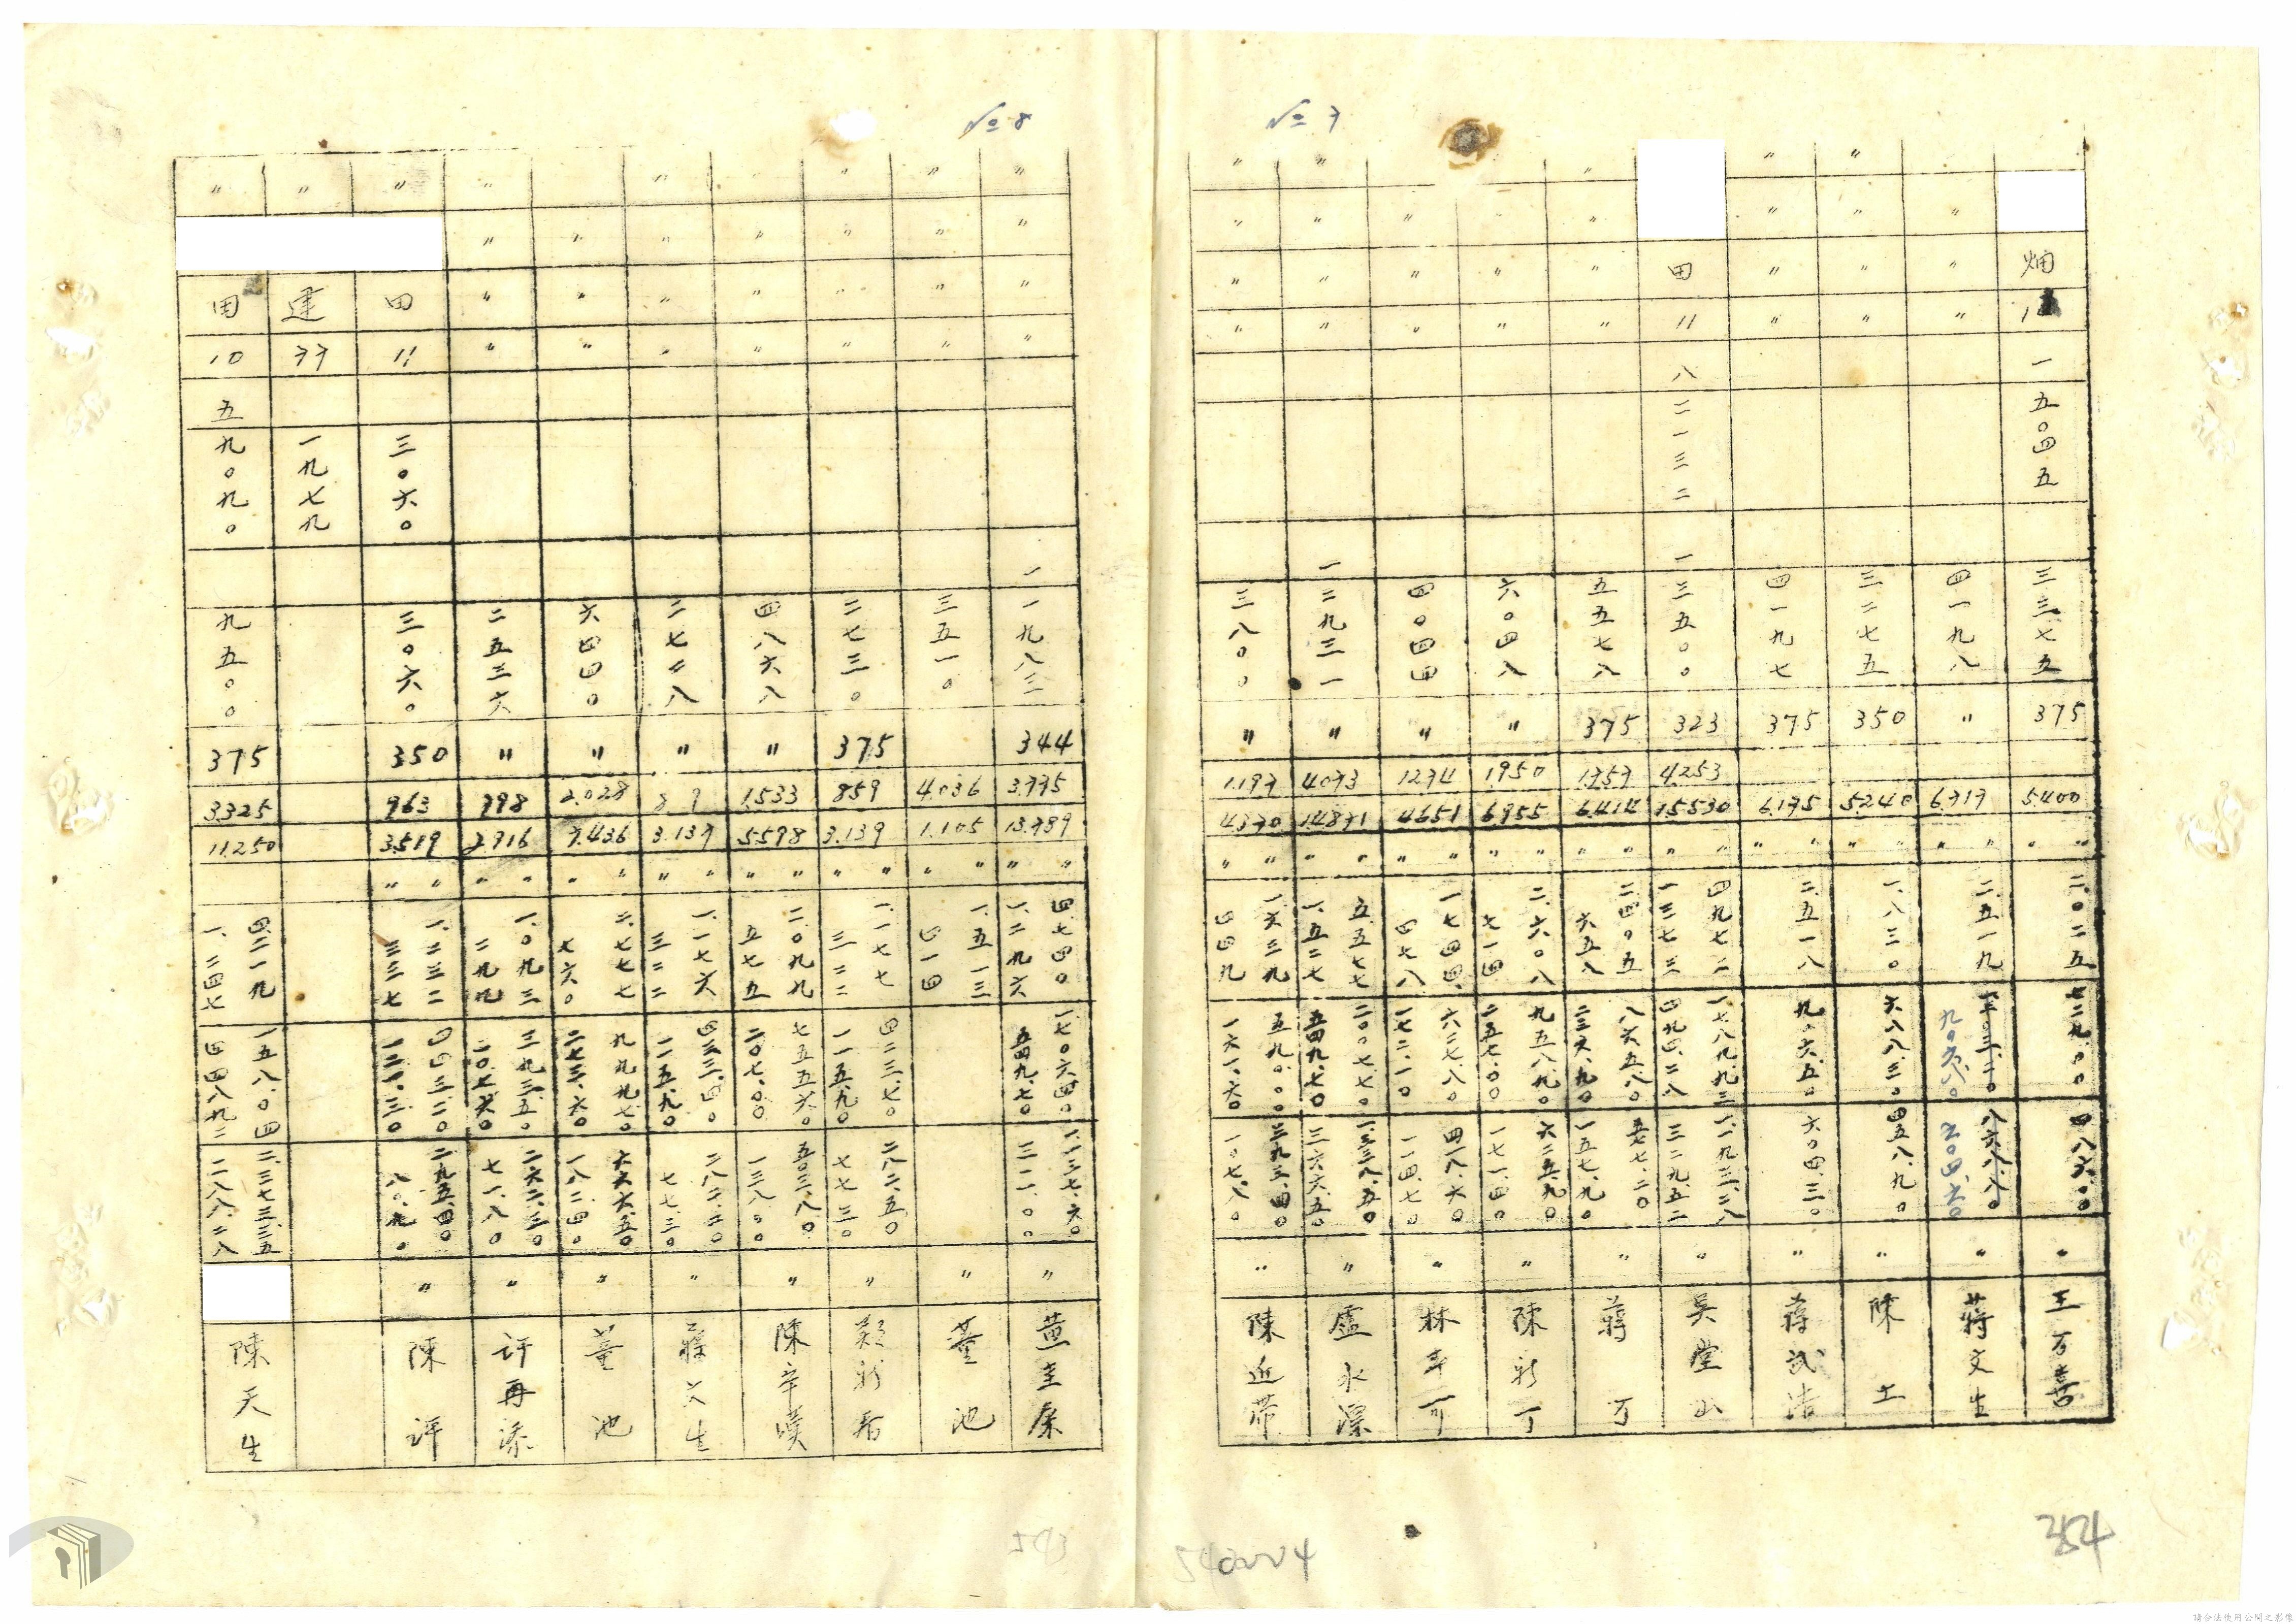 № 7
畑 一 五〇四五 三三七五 375 5400 〃 〃 二.〇二五 七二九.〇〇 四八六.〇〇 〃 王万喜
〃 〃 〃 四一九八 〃 6.717 〃 〃 二.五一九 九〇六.八〇 八六八.八〇 六〇四.六〇 〃 蔣文生
〃 〃 〃 〃 三二七五 350 5.240 〃 〃 一.八三〇 六八八.三〇 四五八.九〇 〃 陳土
〃 〃 〃 〃 四一九七 375 6.175 〃 〃 二.五一八 九〇六.五〇 六〇四.三〇 〃 蔣武浩
田 11 八 二一三二 一 三五〇〇 323 4.253 15.530 〃 〃 四九七二 一三七三 一七八九.九三 四九四.二八 一.一九三.二八 三二九.五二 〃 吳堂山
〃 〃 〃 〃 五五七八 375 1.757 6.414 〃 〃 二.四〇五 六五八 八六五.八〇 二三六.九〇 五七七.二〇 一五七.九〇 〃 蔣万
〃 〃 〃 六〇四八 〃 1.950 6.955 〃 〃 二.六〇八 七一四 九五八.九〇 二五七.〇〇 六二五.九〇 一七一.四〇 〃 陳新丁
〃 〃 〃 四〇四四 〃 1274 4651 〃 〃 一七四四 四七八 六二七.八〇 一七二.一〇 四一八.六〇 一一四.七〇 〃 林年
〃 〃 〃 〃 一 二九三一 〃 4.073 14.871 〃 〃 五.五七七 一.五二七 二〇〇七.七〇 五四九.七〇 一.三三八.五〇 三六六.五〇 〃 盧永深
〃 〃 〃 〃 三八〇〇 〃 1.197 4370 〃 〃 一.六三九 四四九 五九〇.〇〇 一六一.六〇 三九三.四〇 一〇七.八〇 〃 陳近帶
№ 8
〃 〃 〃 〃 一 一九八三 344 3.775 13.789 〃 〃 四七四〇 一.二九六 一.七〇六.四〇 五四九.七〇 一.一三七.六〇 三一一.〇〇 〃 黄圭康
〃 〃 〃 〃 三五一〇 4.036 1.105 〃 〃 一.五一三 四一四 〃 董池
〃 〃 〃 〃 二七三〇 375 859 3.139 〃 〃 一.一七七 三二二 四二三.七〇 一一五.九〇 二八二.五〇 七七.三〇 〃 鄭新居
〃 〃 〃 四八六八 〃 1.533 5.598 〃 〃 二.〇九九 五七五 七五五.六〇 二〇七.〇〇 五〇三.八〇 一三八.〇〇 〃 陳辛
〃 〃 〃 〃 二七二八 〃 3.137 〃 〃 一.一七六 三二二 四二三.四〇 一一五.九〇 二八二.二〇 七七.三〇 〃 蔣文生
〃 〃 〃 六四四〇 〃 2.028 7.436 〃 〃 二.七七七 七六〇 九九九.七〇 二七三.六〇 六六六.五〇 一八二.四〇 〃 董池
〃 〃 〃 〃 二五三六 〃 798 2.916 〃 〃 一.〇九三 二九九 三九三.五〇 一〇七.六〇 二六二.三〇 七一.八〇 〃 許再添
〃 田 11 三〇六〇 三〇六〇 350 963 3.519 〃 〃 一.二三二 三三七 四四三.二〇 一二一.三〇 二九五.四〇 八〇.九〇 〃 陳評
〃 建 77 一九七九
〃 田 10 五 九〇九〇 九五〇〇 375 3.325 11.250 四.二一九 一.二四七 一五八.〇四 四四八九二 二.三七三.三五 二八八.二八 陳天生
543
354
請合法使用公開之影像